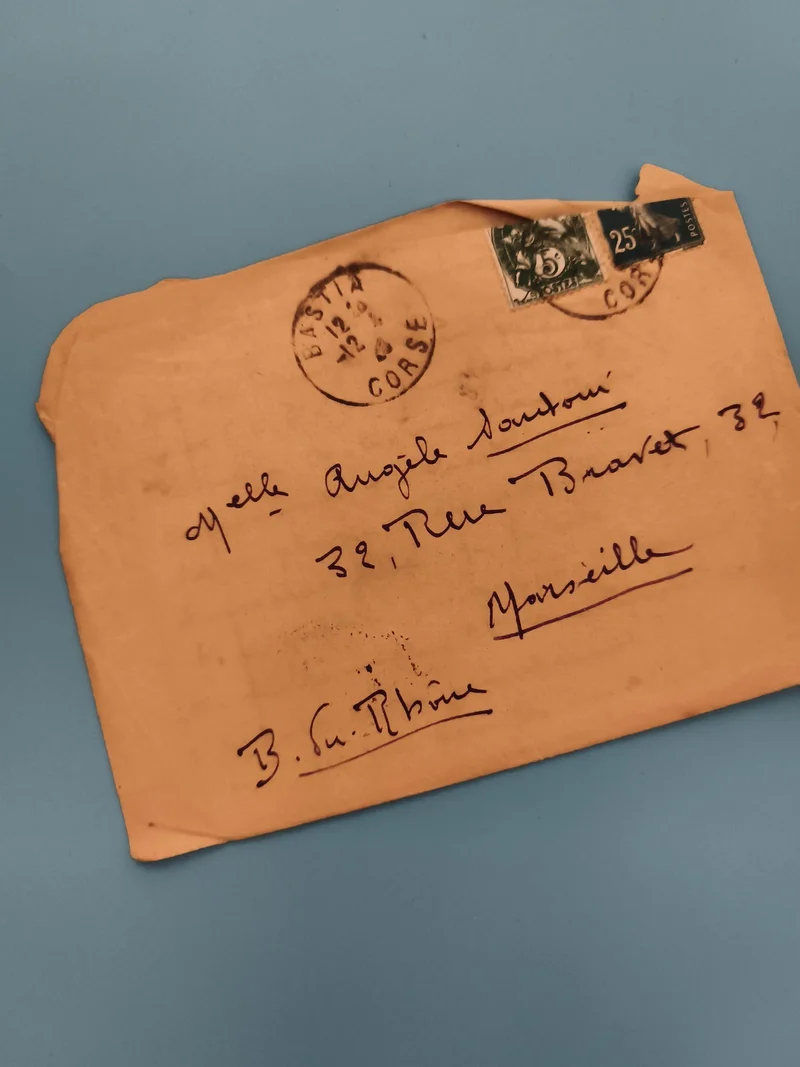 5c
POSTES
25c
POSTES
BASTIA
12
-12
CORSE
CORSE
Melle Angèle Santoni
32, Rue Bravet, 32
Marseille
B. du. Rhône